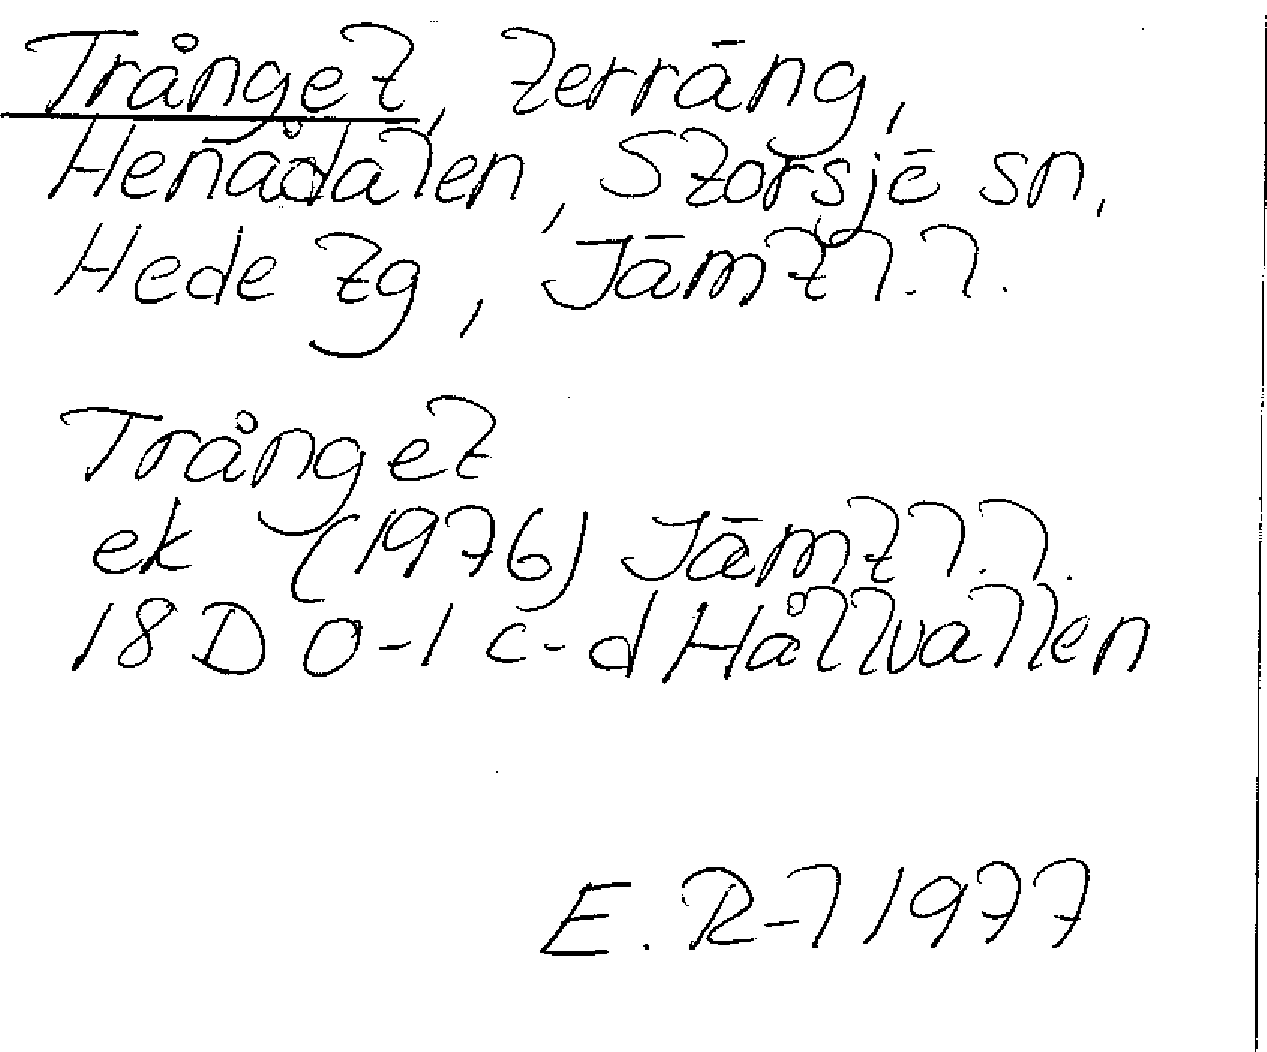 Trånget, terräng,
Henådalen, Storsjö sn,
Hede tg, Jämtl.l.
Trånget
ek (1976) Jämtl.l.
18D 0-1 c-d Hållvallen
E. R-l 1977